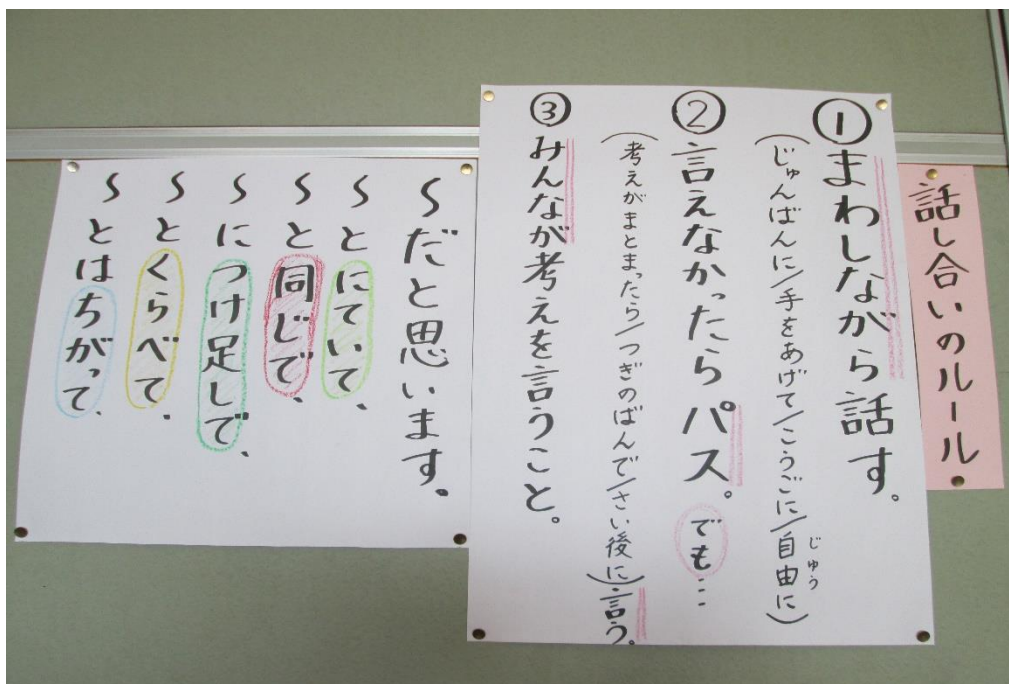 話し合いのルール
①まわしながら話す。
(じゅんばんに/手をあげて/こうごに/自由に)
じゆう
②言えなかったらパス。でも…
(考えがまとまったら/つぎのばんで/さい後に)言う。
③みんなが考えを言うこと。
～だと思います。
～とにていて、
～と同じで、
～につけ足しで、
～とくらべて、
～とはちがって、